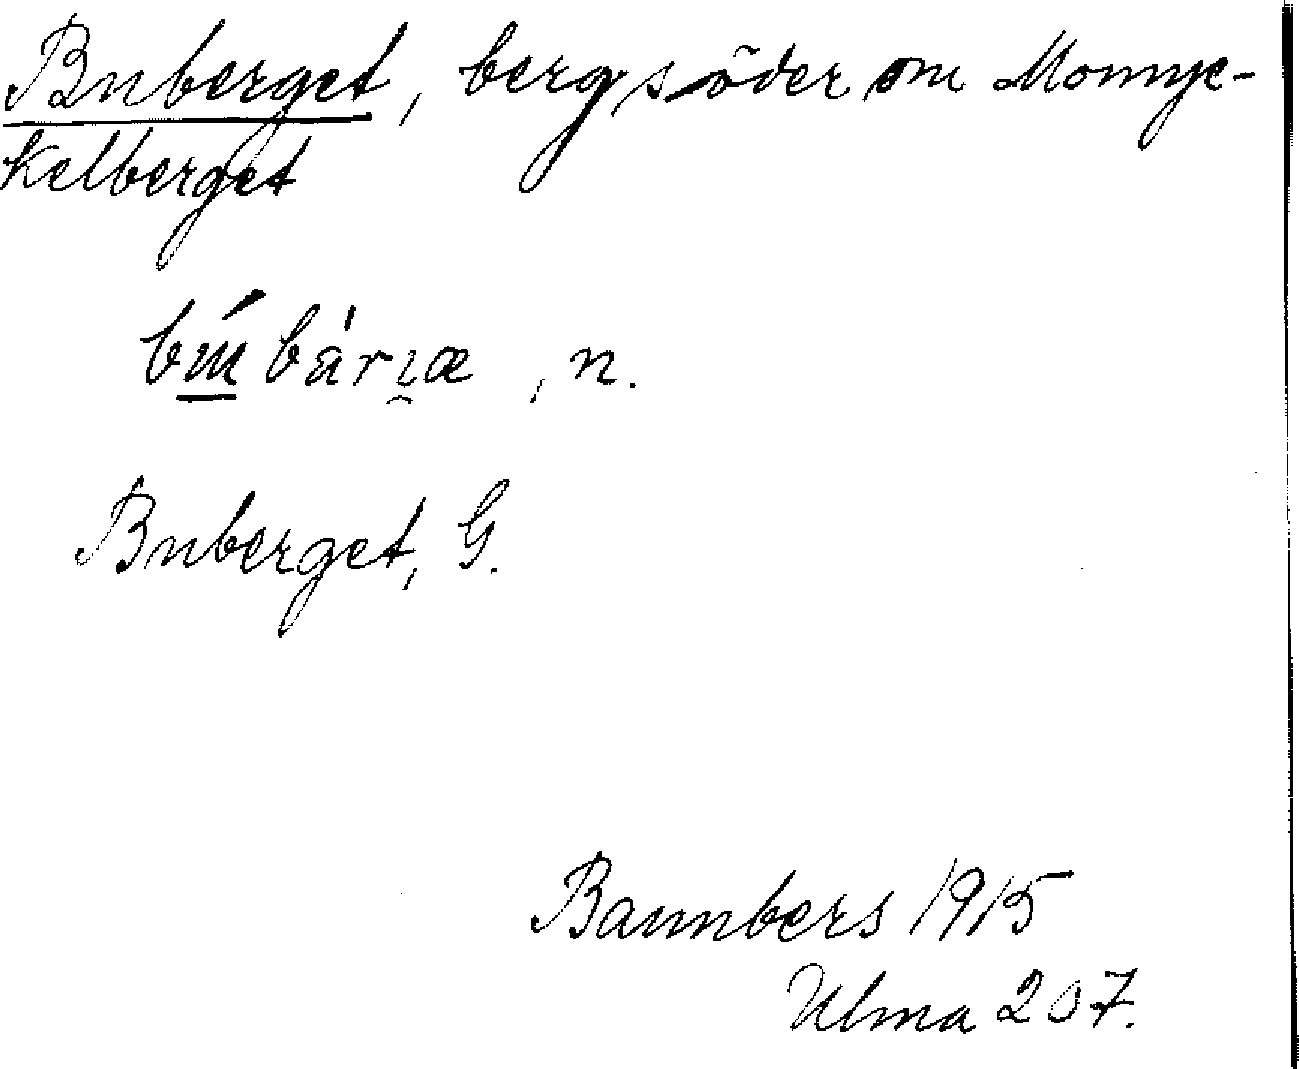 Buberget, berg söder om Monnyc-
kelberget
bárıæ, n.
Buberget, G.
Bannbers 1915
Ulma 207.